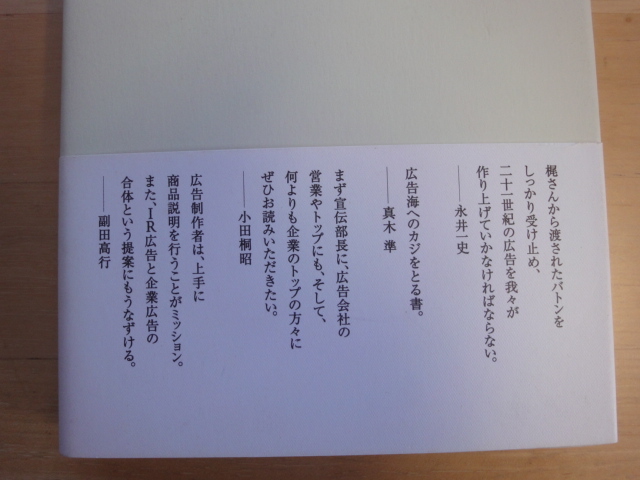 梶さんから渡されたバトンを
しっかり受け止め、
二十一世紀の広告を我々が
作り上げていかなければならない。
——永井一史
広告海へのカジをとる書。
——真木 準
まず宣伝部長に、広告会社の
営業やトップにも、そして、
何よりも企業のトップの方々に
ぜひお読みいただきたい。
——小田桐昭
広告制作者は、上手に
商品説明を行うことがミッション。
また、IR広告と企業広告の
合体という提案にもうなずける。
——副田高行